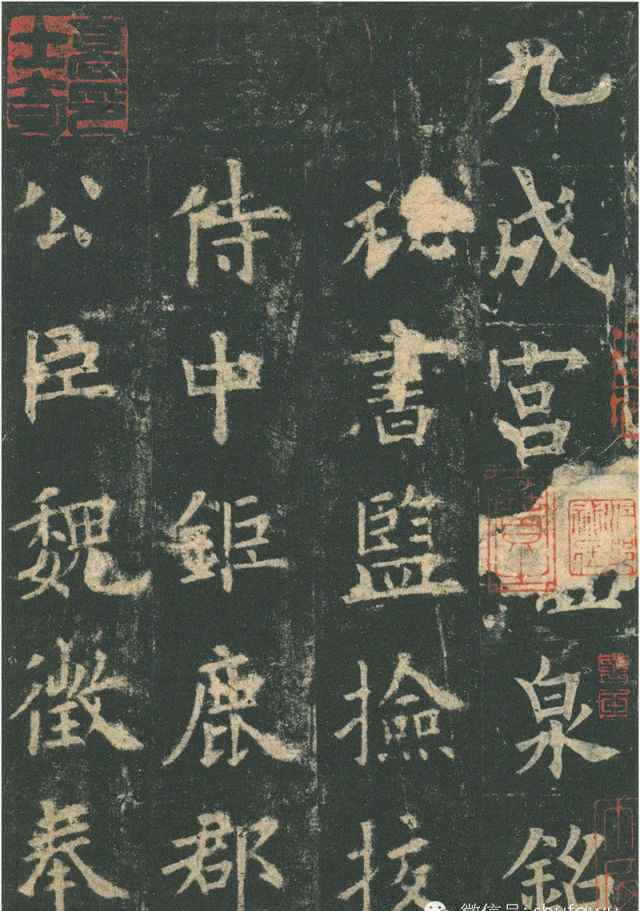 九成宮泉銘
書監撿挍
侍中鉅鹿郡
公臣魏徵奉
微信号: shufawu